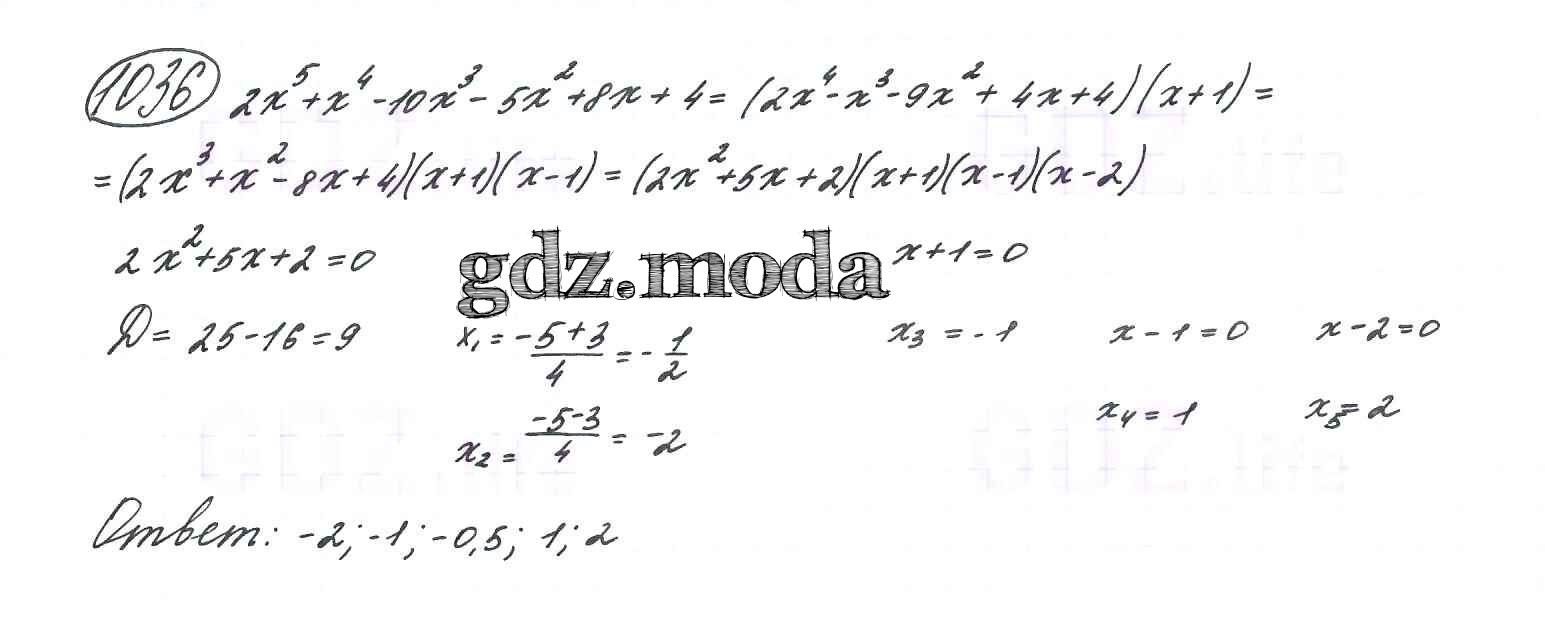 1036 2x⁵+x⁴-10x³-5x²+8x+4=(2x⁴-x³-9x²+4x+4)(x+1)=
=(2x³+x²-8x+4)(x+1)(x-1)=(2x²+5x+2)(x+1)(x-1)(x-2)
2x²+5x+2=0 gdz.moda x+1=0
D=25-16=9 x₁=(-5+3)/4=-1/2 x₃=-1 x-1=0 x-2=0
x₂=(-5-3)/4=-2 x₄=1 x₅=2
Ответ: -2; -1; -0,5; 1; 2